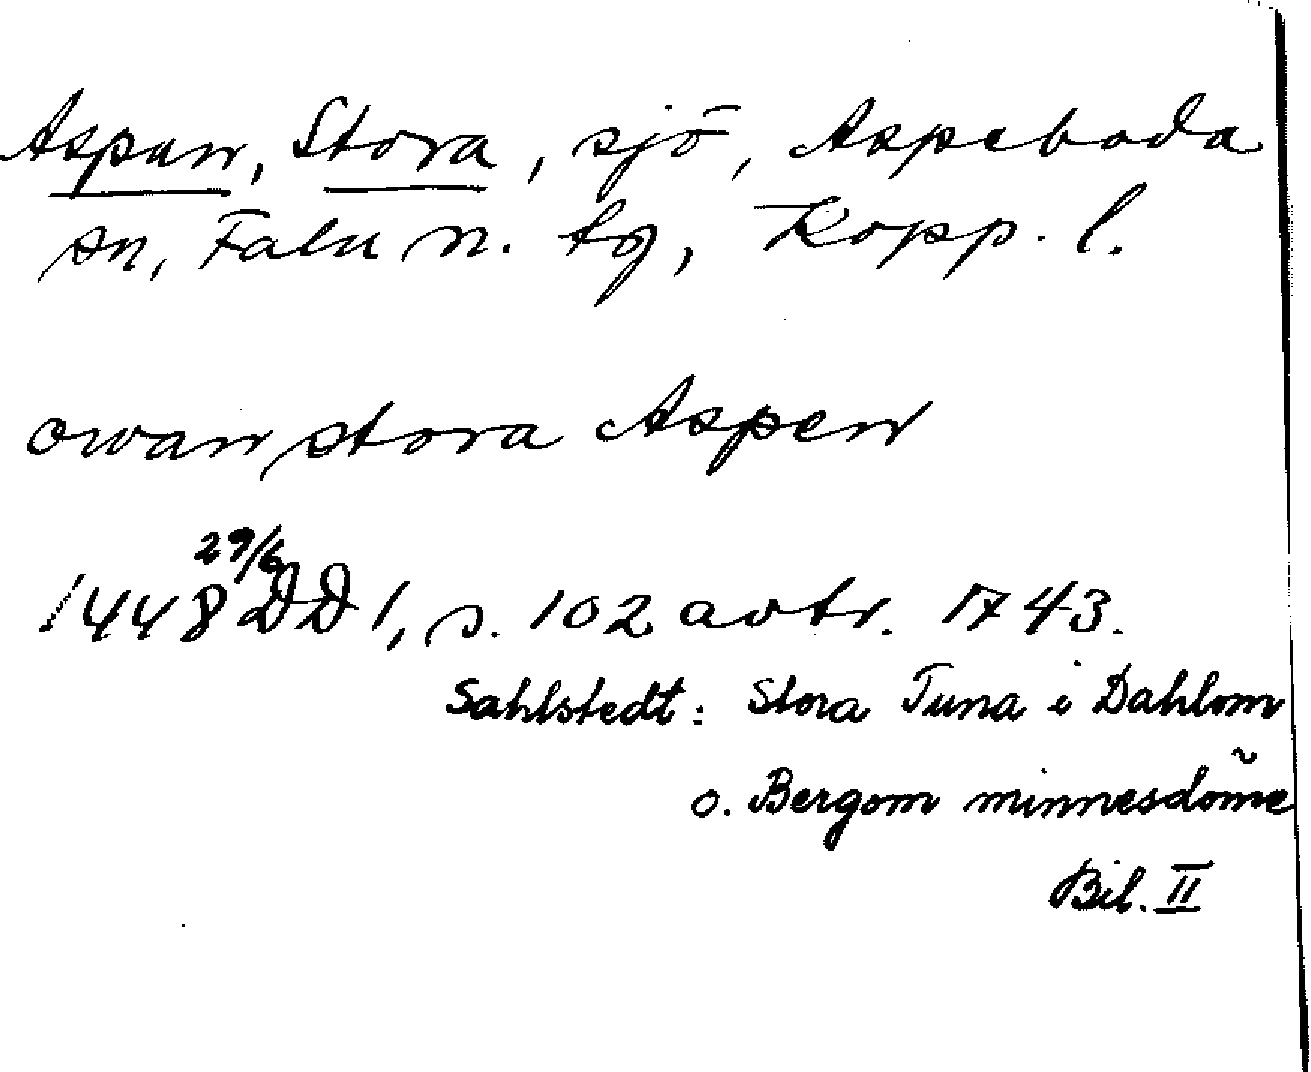 Aspan, Stora, sjö, Aspeboda
sn, Falu n. tg, Kopp. l.
owan stora Aspen
1448 29/6 DD 1, s. 102 avtr. 1743.
Sahlstedt: Stora Tuna i Dahlom
o. Bergom minnesdöme
Bil. II